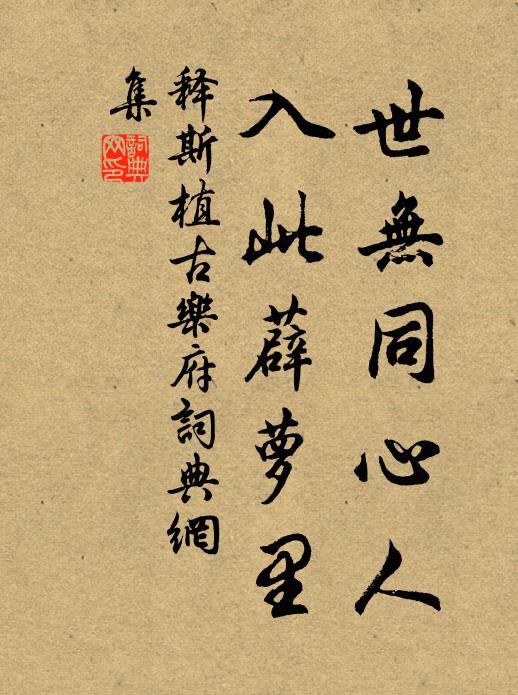 世無同心人
入此薜萝里
释斯植古樂府詞典網
集
詞典網印